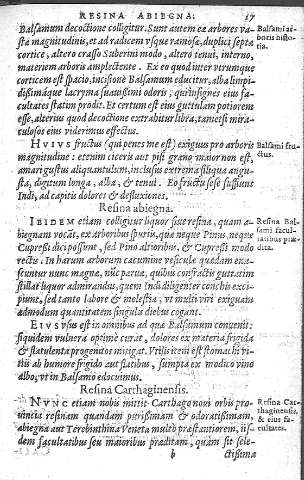 RESINA ABIEGNA. 17
Balsamum decoctione colligitur. Sunt autem eæ arbores va-
stæ magnitudinis, et ad radicem vsque ramosæ, duplici septæ
cortice, altero crasso Suberini modo, altero tenui, interno,
materiem arboris amplectente. Ex eo quod inter vtrumque
corticem est spacio, incisione Balsamum educitur, alba limpi-
dissimaque lacryma suauissimi odoris; quin insignes eius fa-
cultates statim prodit. Et certum est eius guttulam potiorem
esse, alterius quod decoctione extrabitur libra, tametsi mira-
culosos eius viderimus effectus.
Balsami ar-
boris histo-
ria.
HVIVS fructus (qui penes me est) exiguus pro arboris
magnitudine: etenim ciceris aut pisi grano maior non est,
amari gustus aliquantulum, inclusus extrema siliqua angu-
sta, digitum longa, alba, & tenui. Eo fructu sese suffiunt
Indi, ad capitis dolores & defluxiones.
Balsami fru-
ctus.
Resina abiegna.
IBIDEM etiam colligitur liquor siue resina, quam a-
biegnam vocat, ex arboribus spuriis, quæ neque Pinus, neque
Cupressi dici possunt, sed Pino altioribus, & Cupressi modo
rectis. In harum arborum cacumine vesiculæ quædam ena-
scuntur nunc magnæ, nunc paruæ, quibus confractis guttatim
stillat liquor admirandus, quem Indi diligenter conchis exci-
piunt, sed tanto labore & molestia, vt multi viri exiguam
admodum quantitatem singula diebus cogant.
Resina Bal-
sami facul-
tatibus præ-
dita.
EIVS vsus est in omnibus ad quæ Balsamum conuenit:
siquidem vulnera optime curat, dolores ex materia frigida
& flatulenta progenitos mitigat. Vtilis item est stomachi vi-
tiis ab humore frigido aut flatibus, sumpta ex modico vino
albo, vt in Balsamo edocuimus.
Resina Carthaginensis.
NVNC etiam nobis mittit Carthago noui orbis pro-
uincia resinam quandam purissimam & odoratissimam,
abiegna aut Terebinthina Veneta multo præstantiorem, iis-
dem facultatibus seu maioribus præditam, quam sit sele-
Resina Car-
thaginensis,
& eius fa-
cultates.
b ctissima